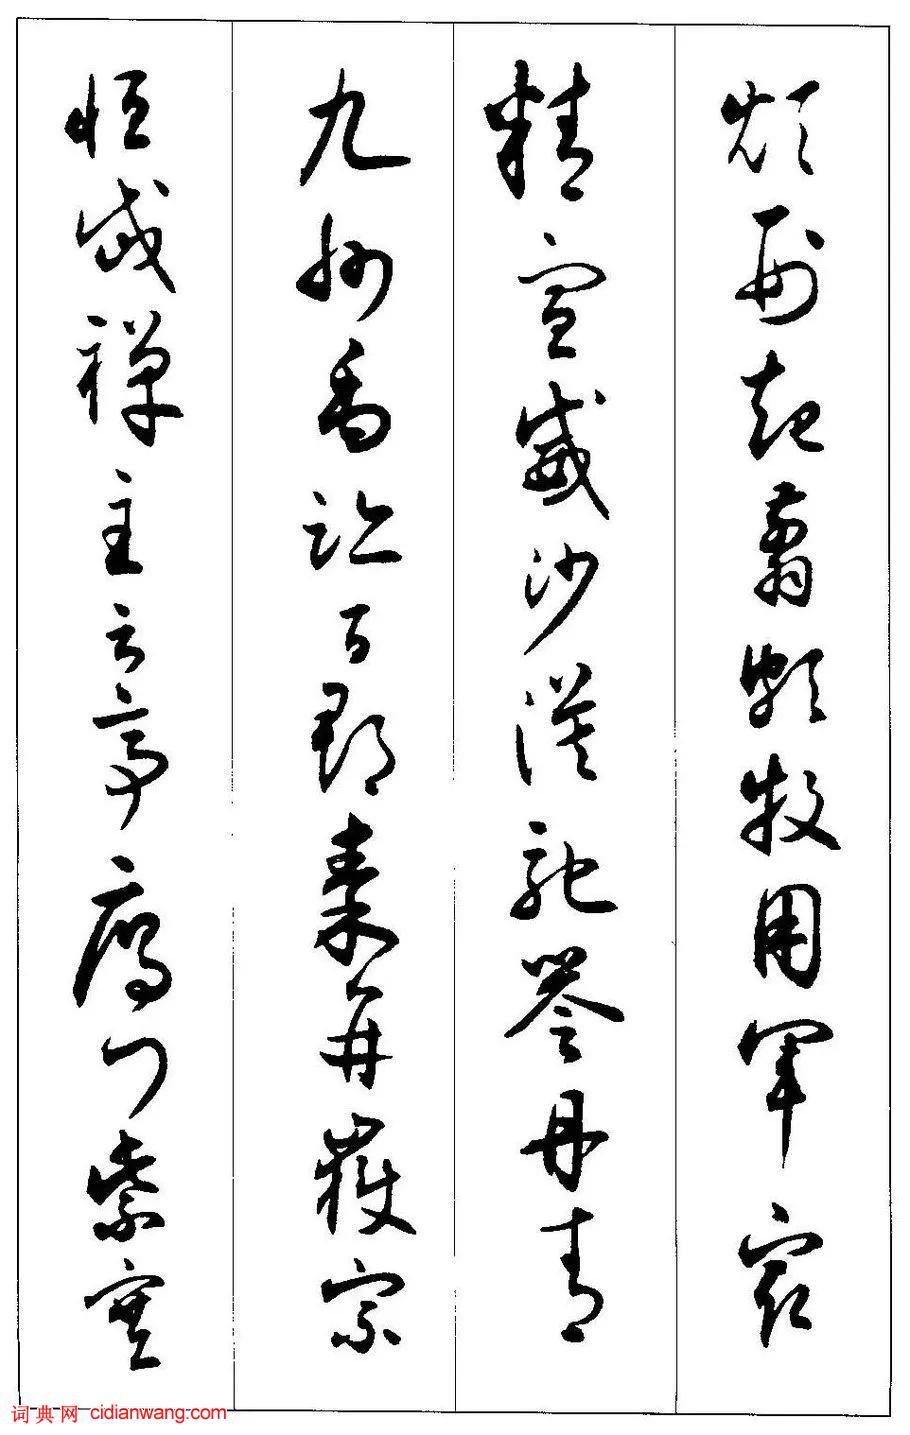 烦刑起翦颇牧用军最
精宣威沙漠驰誉丹青
九州禹迹百郡秦并岳宗
恒岱禅主云亭雁门紫塞
词典网 cidianwang.com